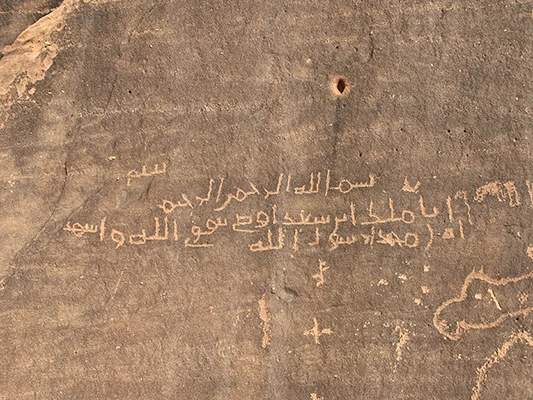 بسم الله الرحمن الرحيم
انا ملك ابن سعيد اوصي بتقوى الله واشهد
ان محمد رسول الله